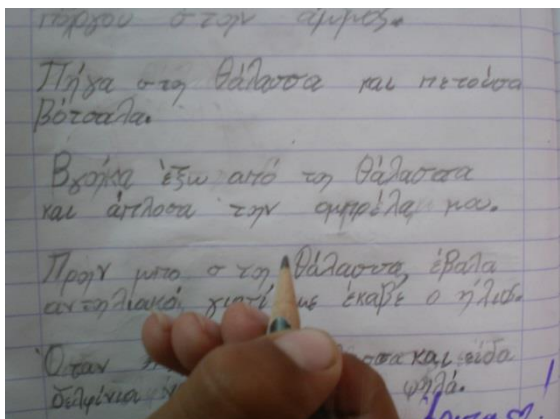 στην άμμος.
Πήγα στη θάλασσα και πετούσα
βότσαλα.
Βγήκα έξω από τη θάλασσα
και άπλοσα την ομπρέλα μου.
Πρην μπο στη θάλασσα, έβαλα
αντηλιακό, γιατί με έκαβε ο ήλιος.
Όταν και είδα
δελφίνια ψηλά.